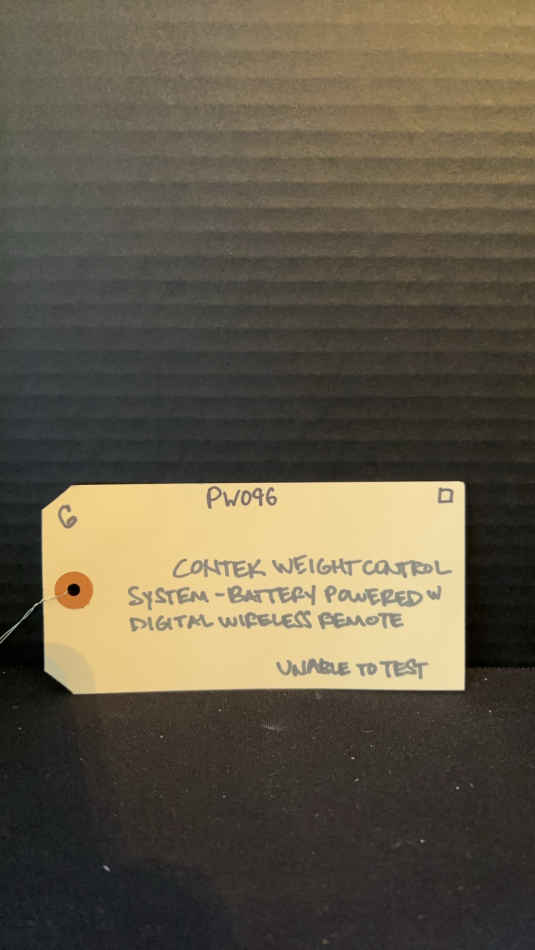 PW096
G
CONTEK WEIGHT CONTROL
SYSTEM - BATTERY POWERED W
DIGITAL WIRELESS REMOTE
UNABLE TO TEST